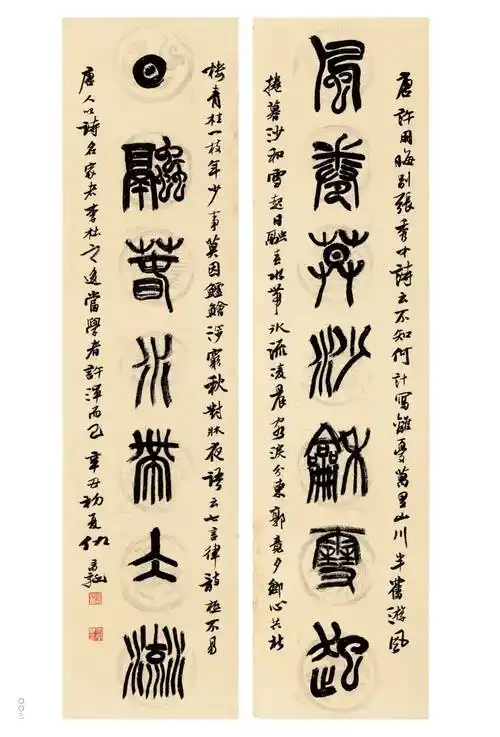 唐許用晦別張秀才詩云不知何計寫離憂萬里山川半舊遊風
風卷莫沙龢雪起
捲暮沙和雪起日融春水帶冰流凌晨客淚分東郭竟夕鄉心共北
樓青桂一枝年少事莫因鱸鱠涉窮秋對牀夜語云七言律詩極不易
日融萅水帶仌流
唐人以詩名家者李杜之後當學者許渾而已辛丑初夏仇高馳
003